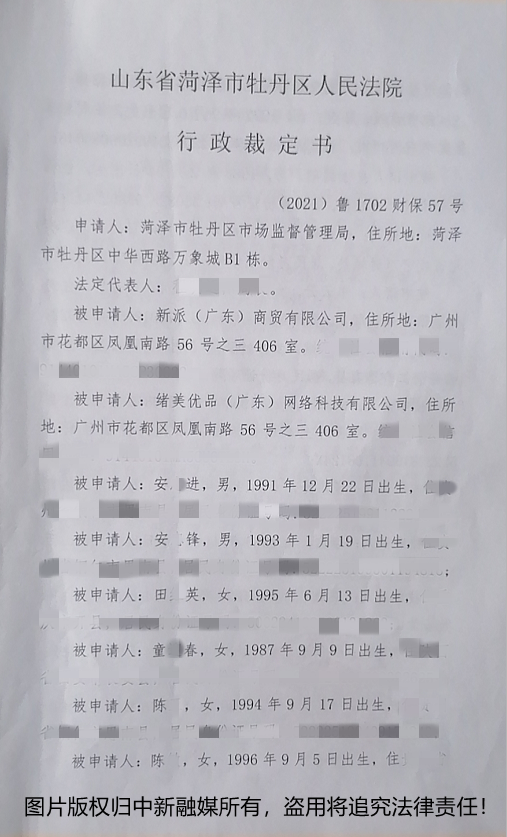 山东省菏泽市牡丹区人民法院
行政裁定书
（2021）鲁1702财保57号
申请人：菏泽市牡丹区市场监督管理局，住所地：菏泽
市牡丹区中华西路万象城B1栋。
法定代表人：
被申请人：新派（广东）商贸有限公司，住所地：广州
市花都区凤凰南路56号之三406室。
被申请人：绪美优品（广东）网络科技有限公司，住所
地：广州市花都区凤凰南路56号之三406室。
被申请人：安 进，男，1991年12月22日出生，
被申请人：安 锋，男，1993年1月19日出生，
被申请人：田 英，女，1995年6月13日出生，
被申请人：童 春，女，1987年9月9日出生，
被申请人：陈 ，女，1994年9月17日出生，
被申请人：陈 ，女，1996年9月5日出生，住
图片版权归中新融媒所有，盗用将追究法律责任！